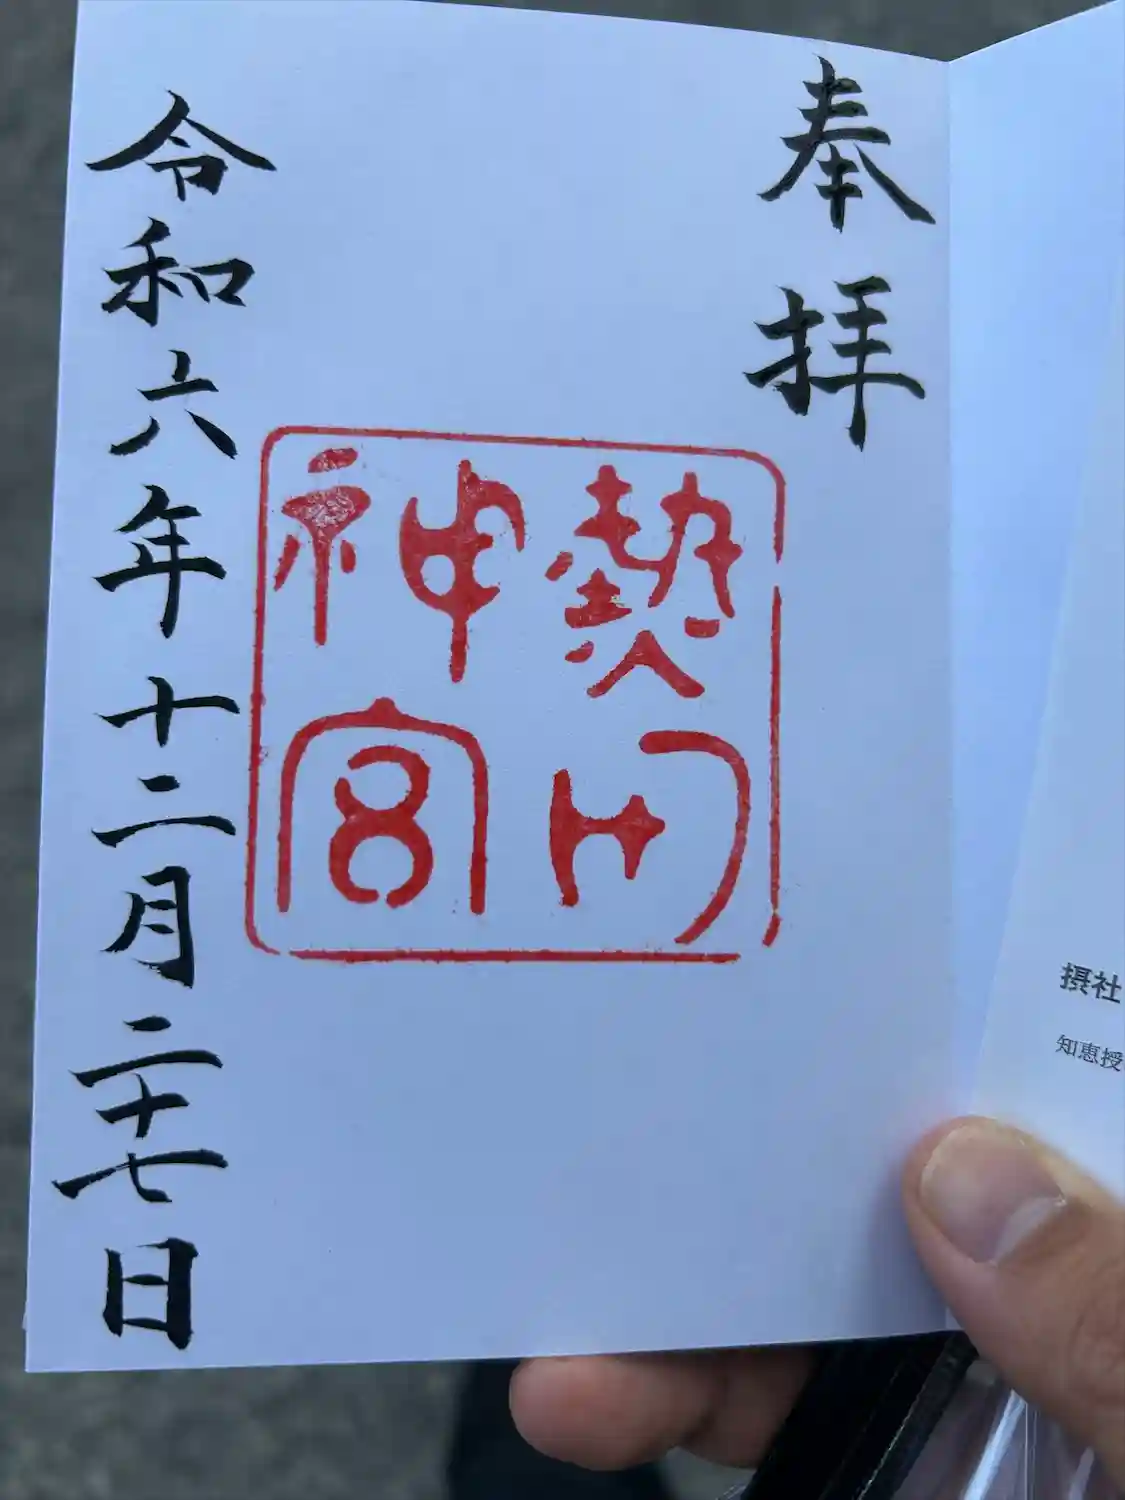 奉拝
熱田
神宮
令和六年十二月二十七日
摂社
知恵授